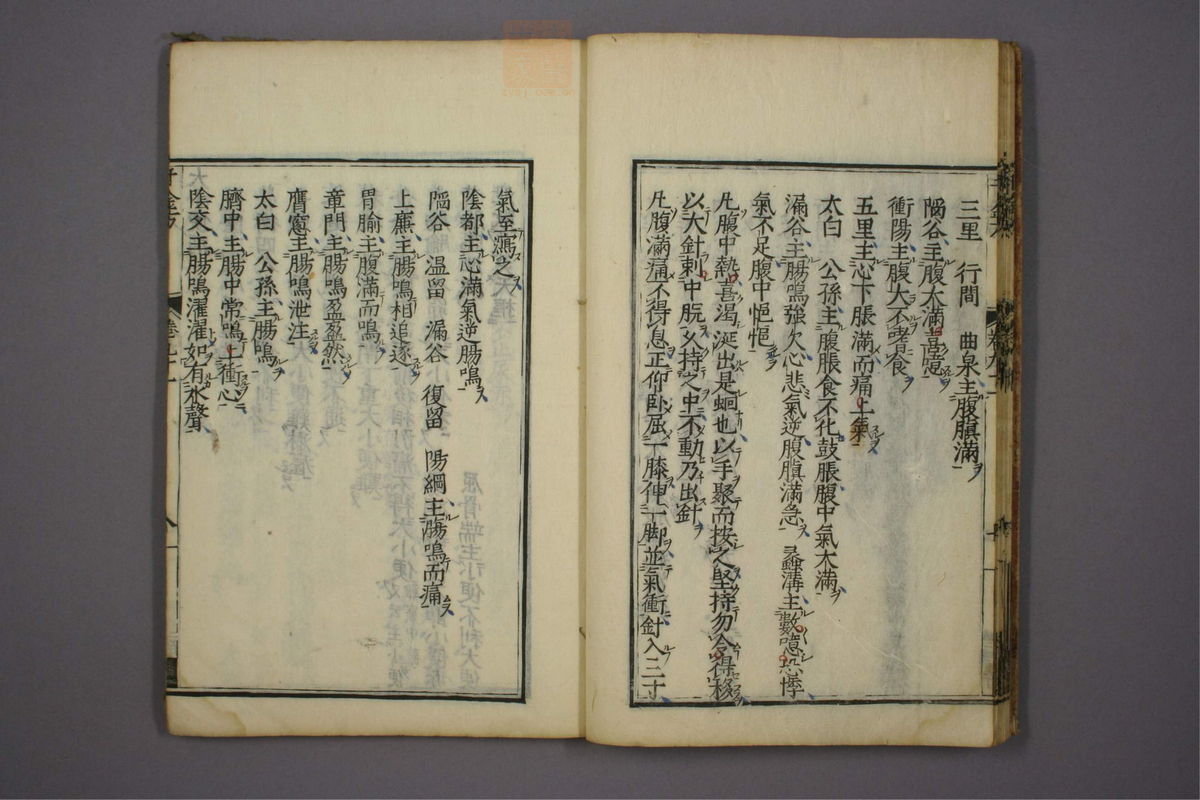 三里　行間　曲泉主腹䐜滿
陷谷主腹大滿喜噫
衝陽主腹大不嗜食
五里主心下脹滿而痛上氣
太白　公孫主腹脹食不化鼓脹腹中氣大滿
漏谷主腸鳴強欠心悲氣逆腹䐜滿急　蠡溝主數噫恐悸
氣不足腹中悒悒
凡腹中熱喜渴涎出是蛔也以手聚而按之堅持勿令得移
以大針刺中脘久持之中不動乃出針
凡腹滿痛不得息正仰臥屈一膝伸一脚並氣衝針入三寸
氣至瀉之
陰都主心滿氣逆腸鳴
陷谷　溫留　漏谷　復留　陽綱主腸鳴而痛
上廉主腸鳴相追逐
胃腧主腹滿而鳴
章門主腸鳴盈盈然
膺窗主腸鳴泄注
太白　公孫主腸鳴
臍中主腸中常鳴上衝心
陰交主腸鳴濯濯如有水聲